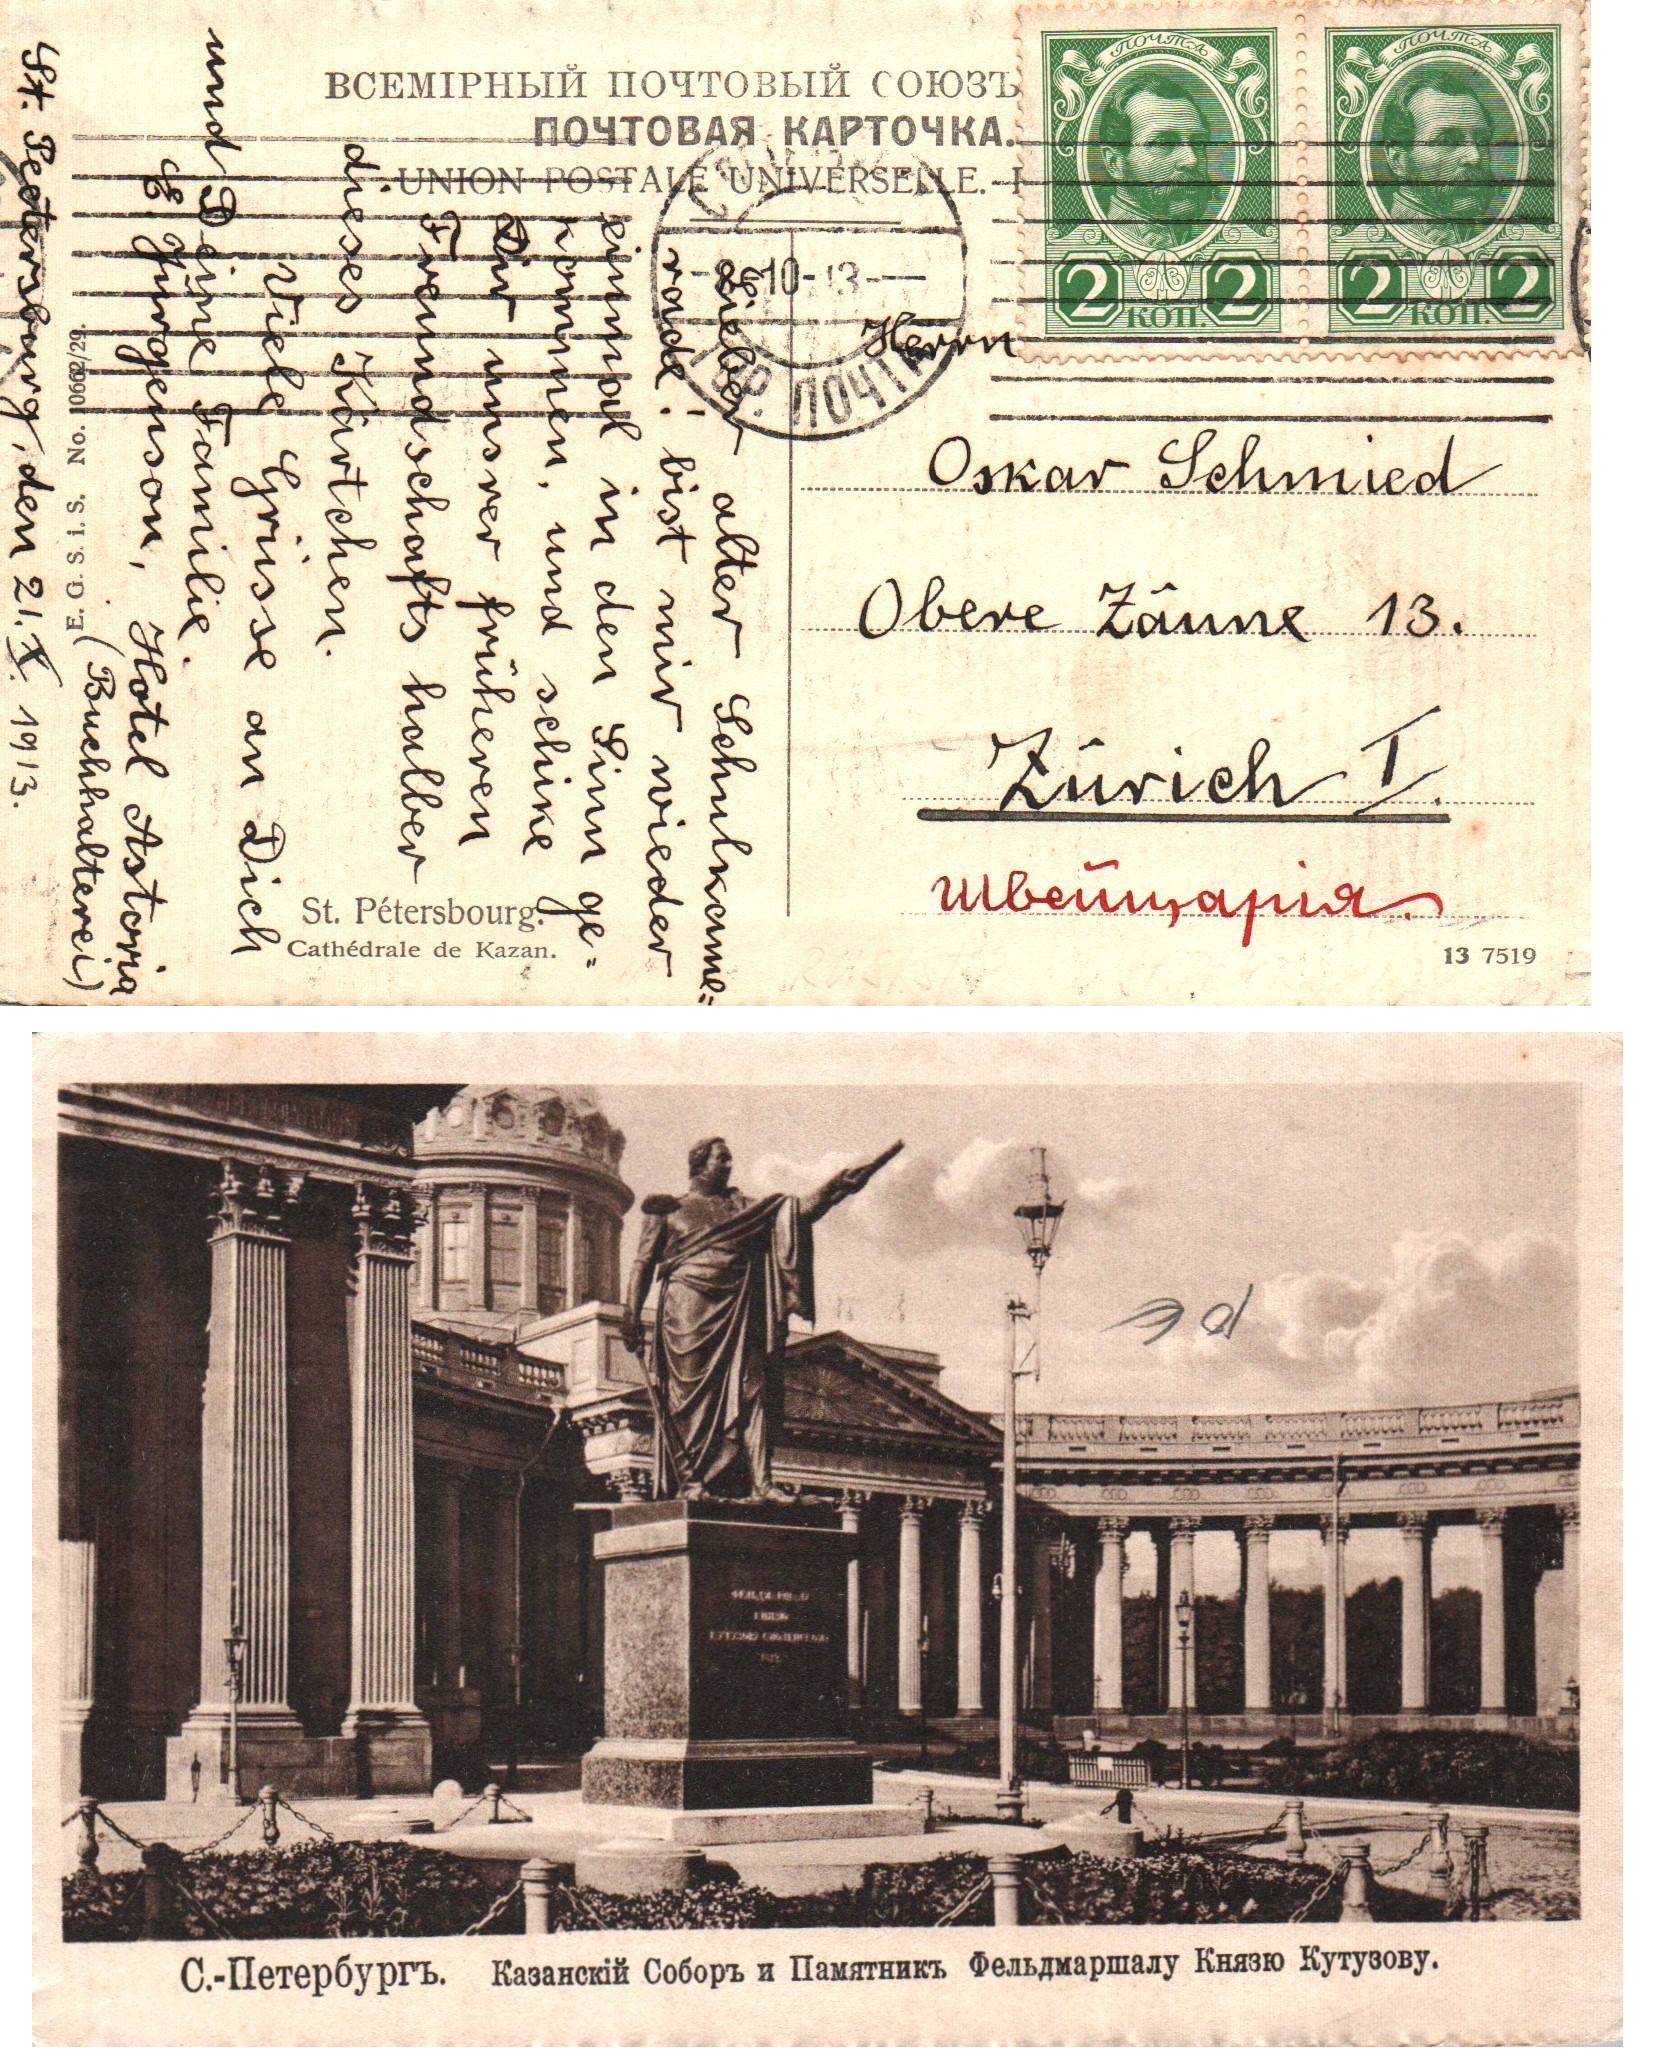 ВСЕМІРНЫЙ ПОЧТОВЫЙ СОЮЗЪ
ПОЧТОВАЯ КАРТОЧКА.
UNION POSTALE UNIVERSELLE.
ПОЧТА
2 2
КОП.
ПОЧТА
2 2
КОП.
10-13
ПОЧТА
Herrn
Oskar Schmied
Obere Zäune 13.
Zürich I.
Швейцарія.
13 7519
St. Pétersbourg.
Cathédrale de Kazan.
E. G. S. i. S. No.
Lieber alter Schulkame=
rade! bist mir wieder
einmal in den Sinn ge=
kommen, und schike
Dir unsrer früheren
Freundschafts halber
dieses Kärtchen.
Viele Grüsse an Dich
und Deine Familie.
E. Jürgenson, Hotel Astoria
(Buchhalterei)
St. Petersburg, den 21. X. 1913.
С.-Петербургъ. Казанскій Соборъ и Памятникъ Фельдмаршалу Князю Кутузову.